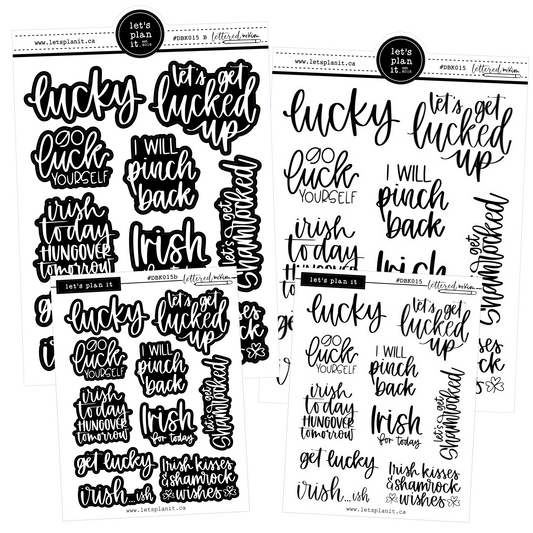 let's
plan
it.
EST. 2015
www.letsplanit.ca
#DBK015 B
lettered.mkim
lucky
let's get
lucked
up
GO
luck
YOURSELF
I WILL
pinch
back
irish
today
HUNGOVER
tomorrow
Irish
let's get
Shamrocked
let's
plan
it.
EST. 2015
www.letsplanit.ca
#DBK015
lucky
let's get
lucked
up
GO
luck
YOURSELF
I WILL
pinch
back
irish
today
HUNGOVER
Irish
let's get
Shamrocked
let's plan it
#DBK015b
lucky
let's get
lucked
up
GO
luck
YOURSELF
I WILL
pinch
back
irish
today
HUNGOVER
tomorrow
Irish
for today
let's get
Shamrocked
get lucky
irish...ish
Irish kisses
& shamrock
wishes
www.letsplanit.ca
let's plan it
#DBK015
lucky
let's get
lucked
up
GO
luck
YOURSELF
I WILL
pinch
back
irish
today
HUNGOVER
tomorrow
Irish
for today
let's get
Shamrocked
get lucky
irish...ish
Irish kisses
& shamrock
wishes
www.letsplanit.ca